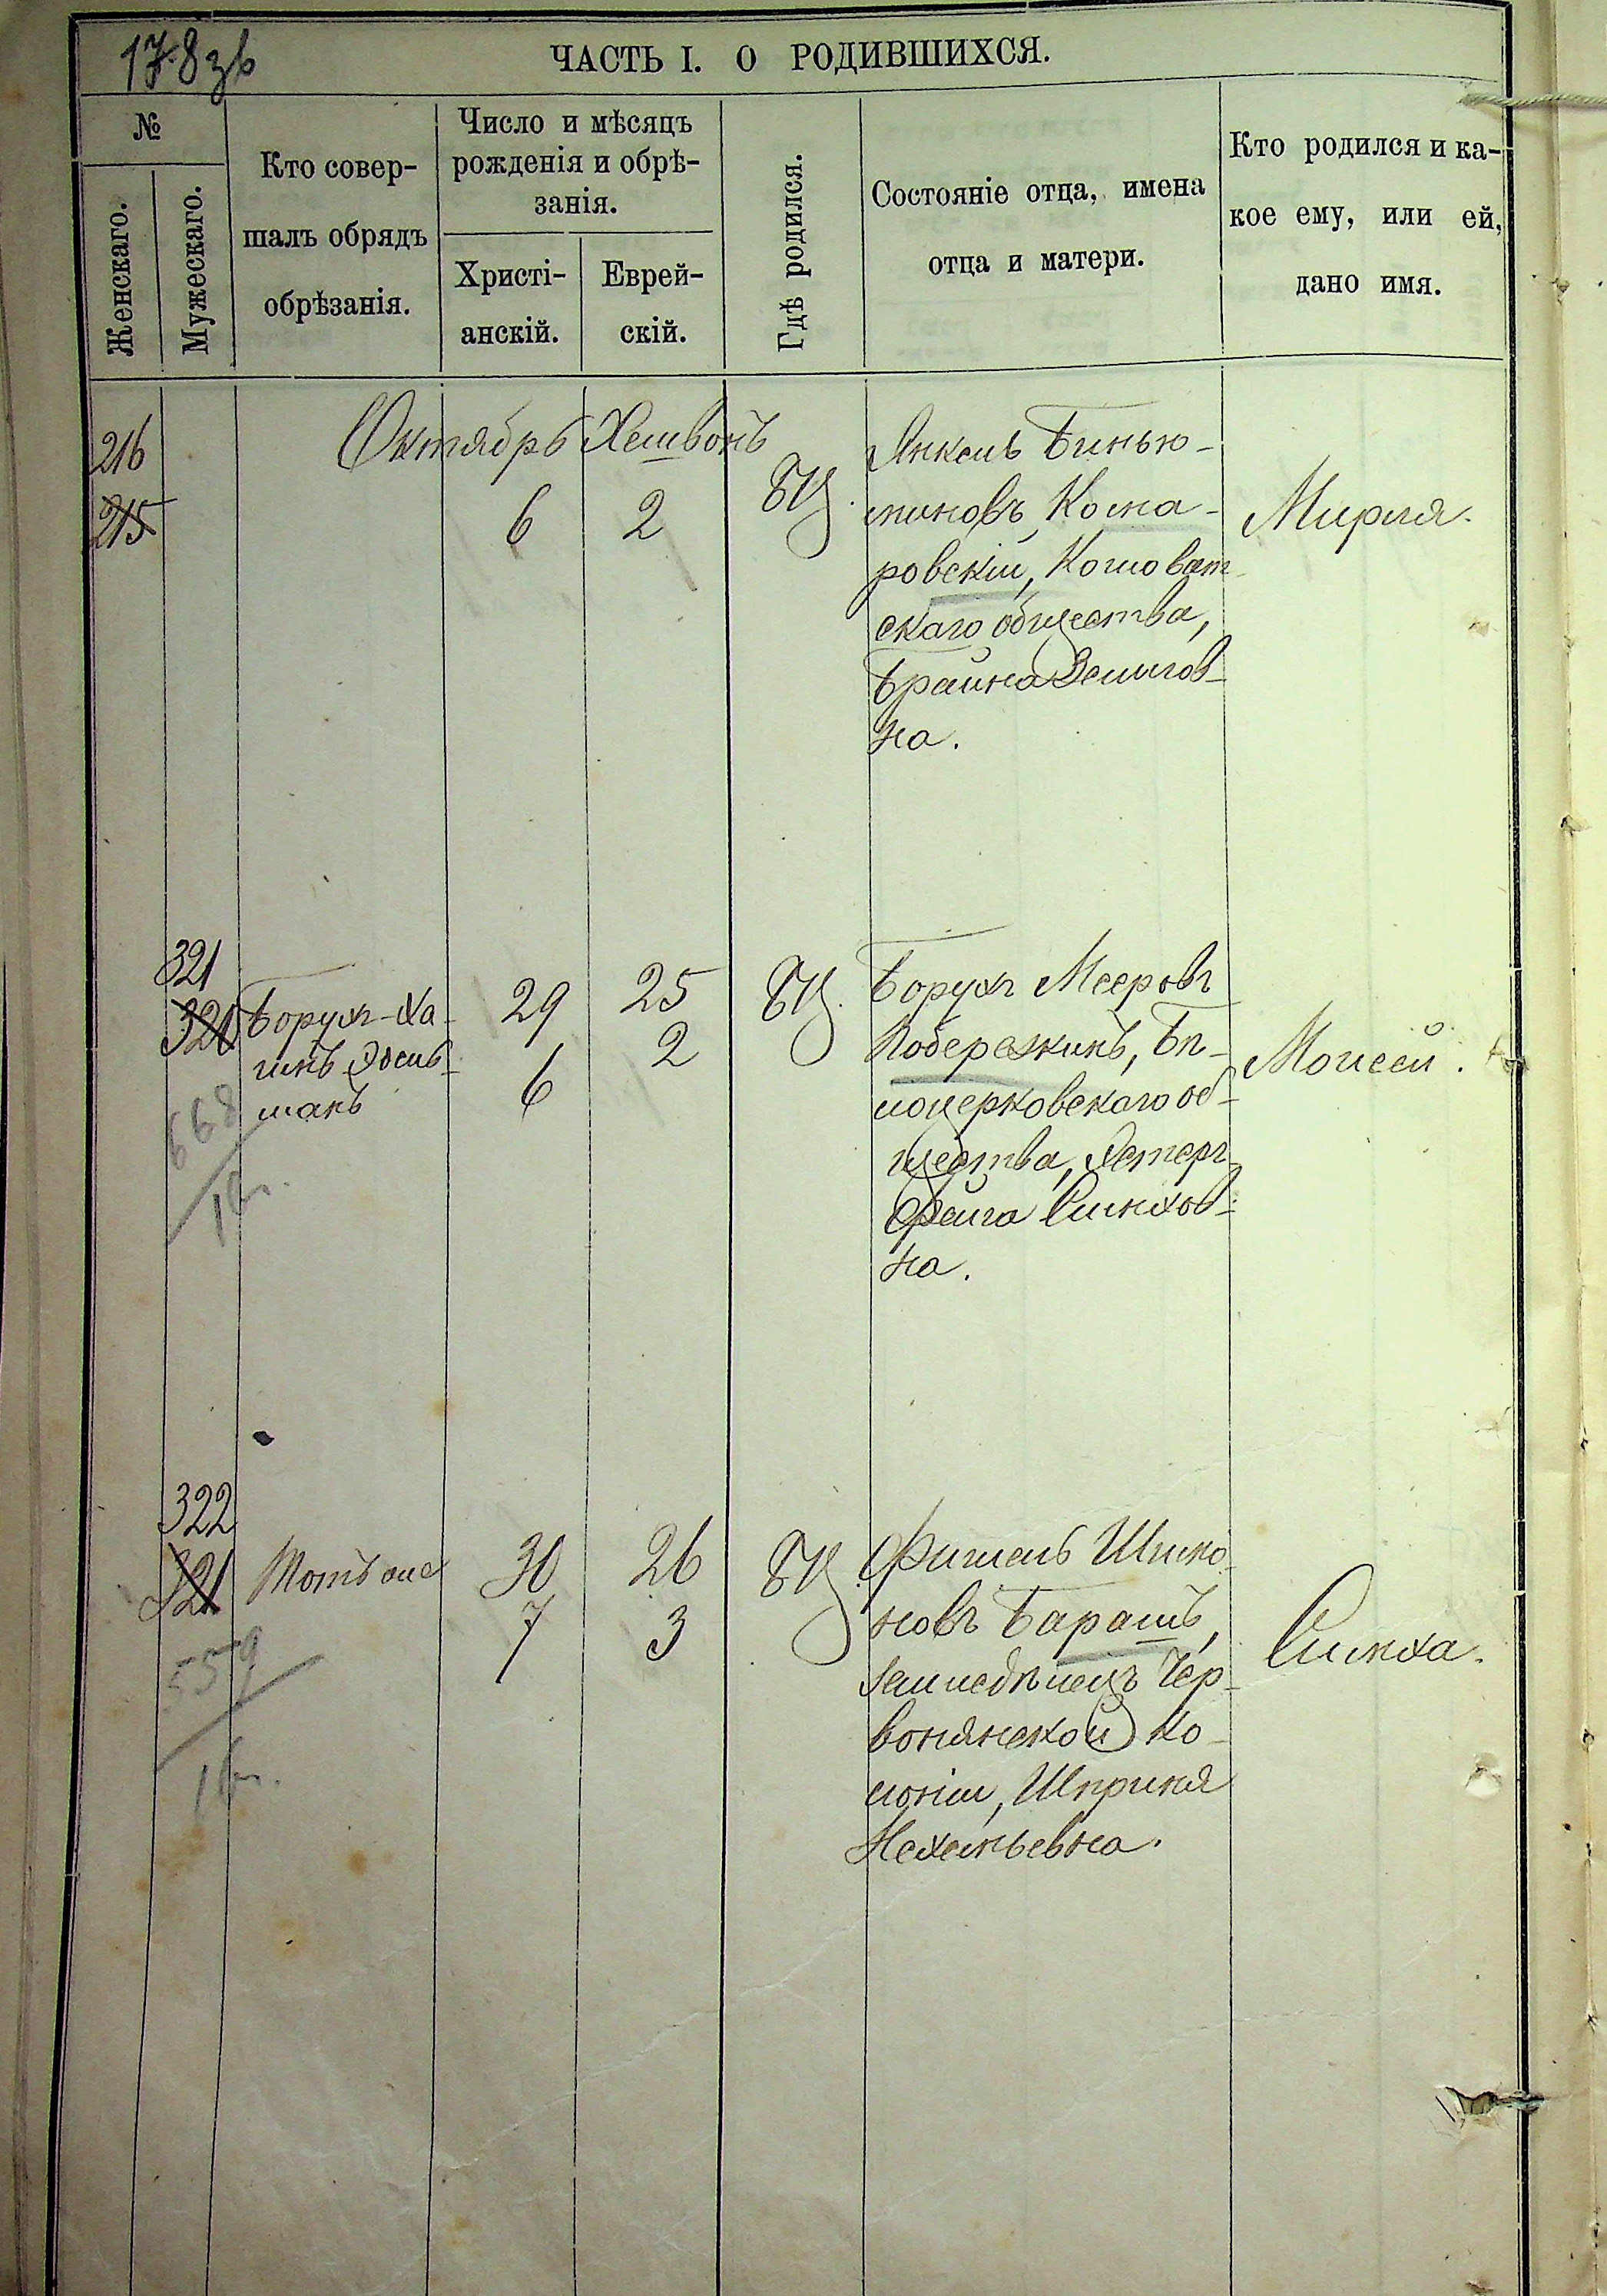 178 зв
ЧАСТЬ I. О РОДИВШИХСЯ.
№
Женскаго.
Мужескаго.
Кто совер-
шалъ обрядъ
обрѣзанія.
Число и мѣсяцъ
рожденія и обрѣ-
занія.
Христі-
анскій.
Еврей-
скій.
Гдѣ родился.
Состояніе отца, имена
отца и матери.
Кто родился и ка-
кое ему, или ей,
дано имя.
Октябрь Хешвонъ
216
215
6
2
БЦ.
Янкель Бинью-
миновъ Кома-
ровскій, Кошоват-
скаго общества,
Брайна Зелигов-
на.
Мирля.
321
320
Борухъ-Ха-
имъ Эдель-
манъ
29
6
25
2
БЦ.
Борухъ Мееровъ
Побережкинъ, Бѣ-
лоцерковскаго об-
щества, Эстеръ
Фейга Симхов-
на.
Моисей.
668
322
321
Тотъ же
30
7
26
3
БЦ.
Фишель Шимо-
новъ Барашъ,
земледѣлецъ Чер-
вонянской ко-
лоніи, Шприня
Нехемьевна.
Симха.
559